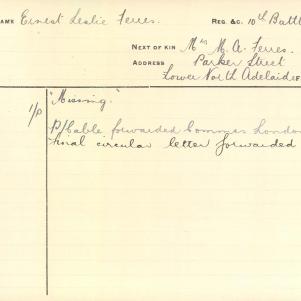 NAME Ernest Leslie Ferres. REG. &C. 10th Battl
NEXT OF KIN Mrs M. A. Ferres.
ADDRESS Parker Street
Lower North Adelaide
"Missing."
1/P P/Cable forwarded Commrs London
final circular letter forwarded